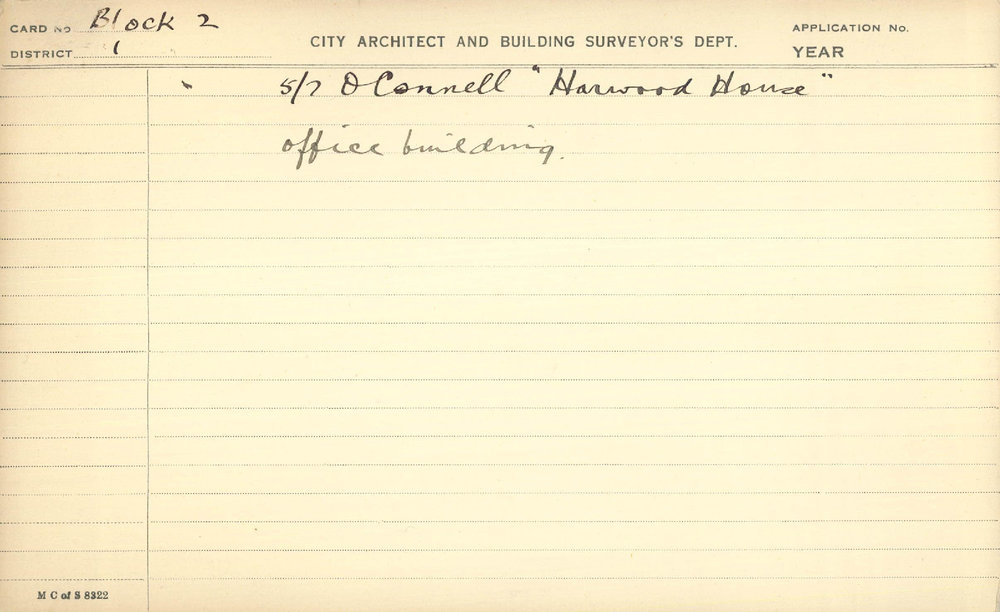 CARD No Block 2
DISTRICT 1
CITY ARCHITECT AND BUILDING SURVEYOR'S DEPT.
APPLICATION No.
YEAR
5/7 O'Connell "Harwood House"
office building.
M C of S 8322